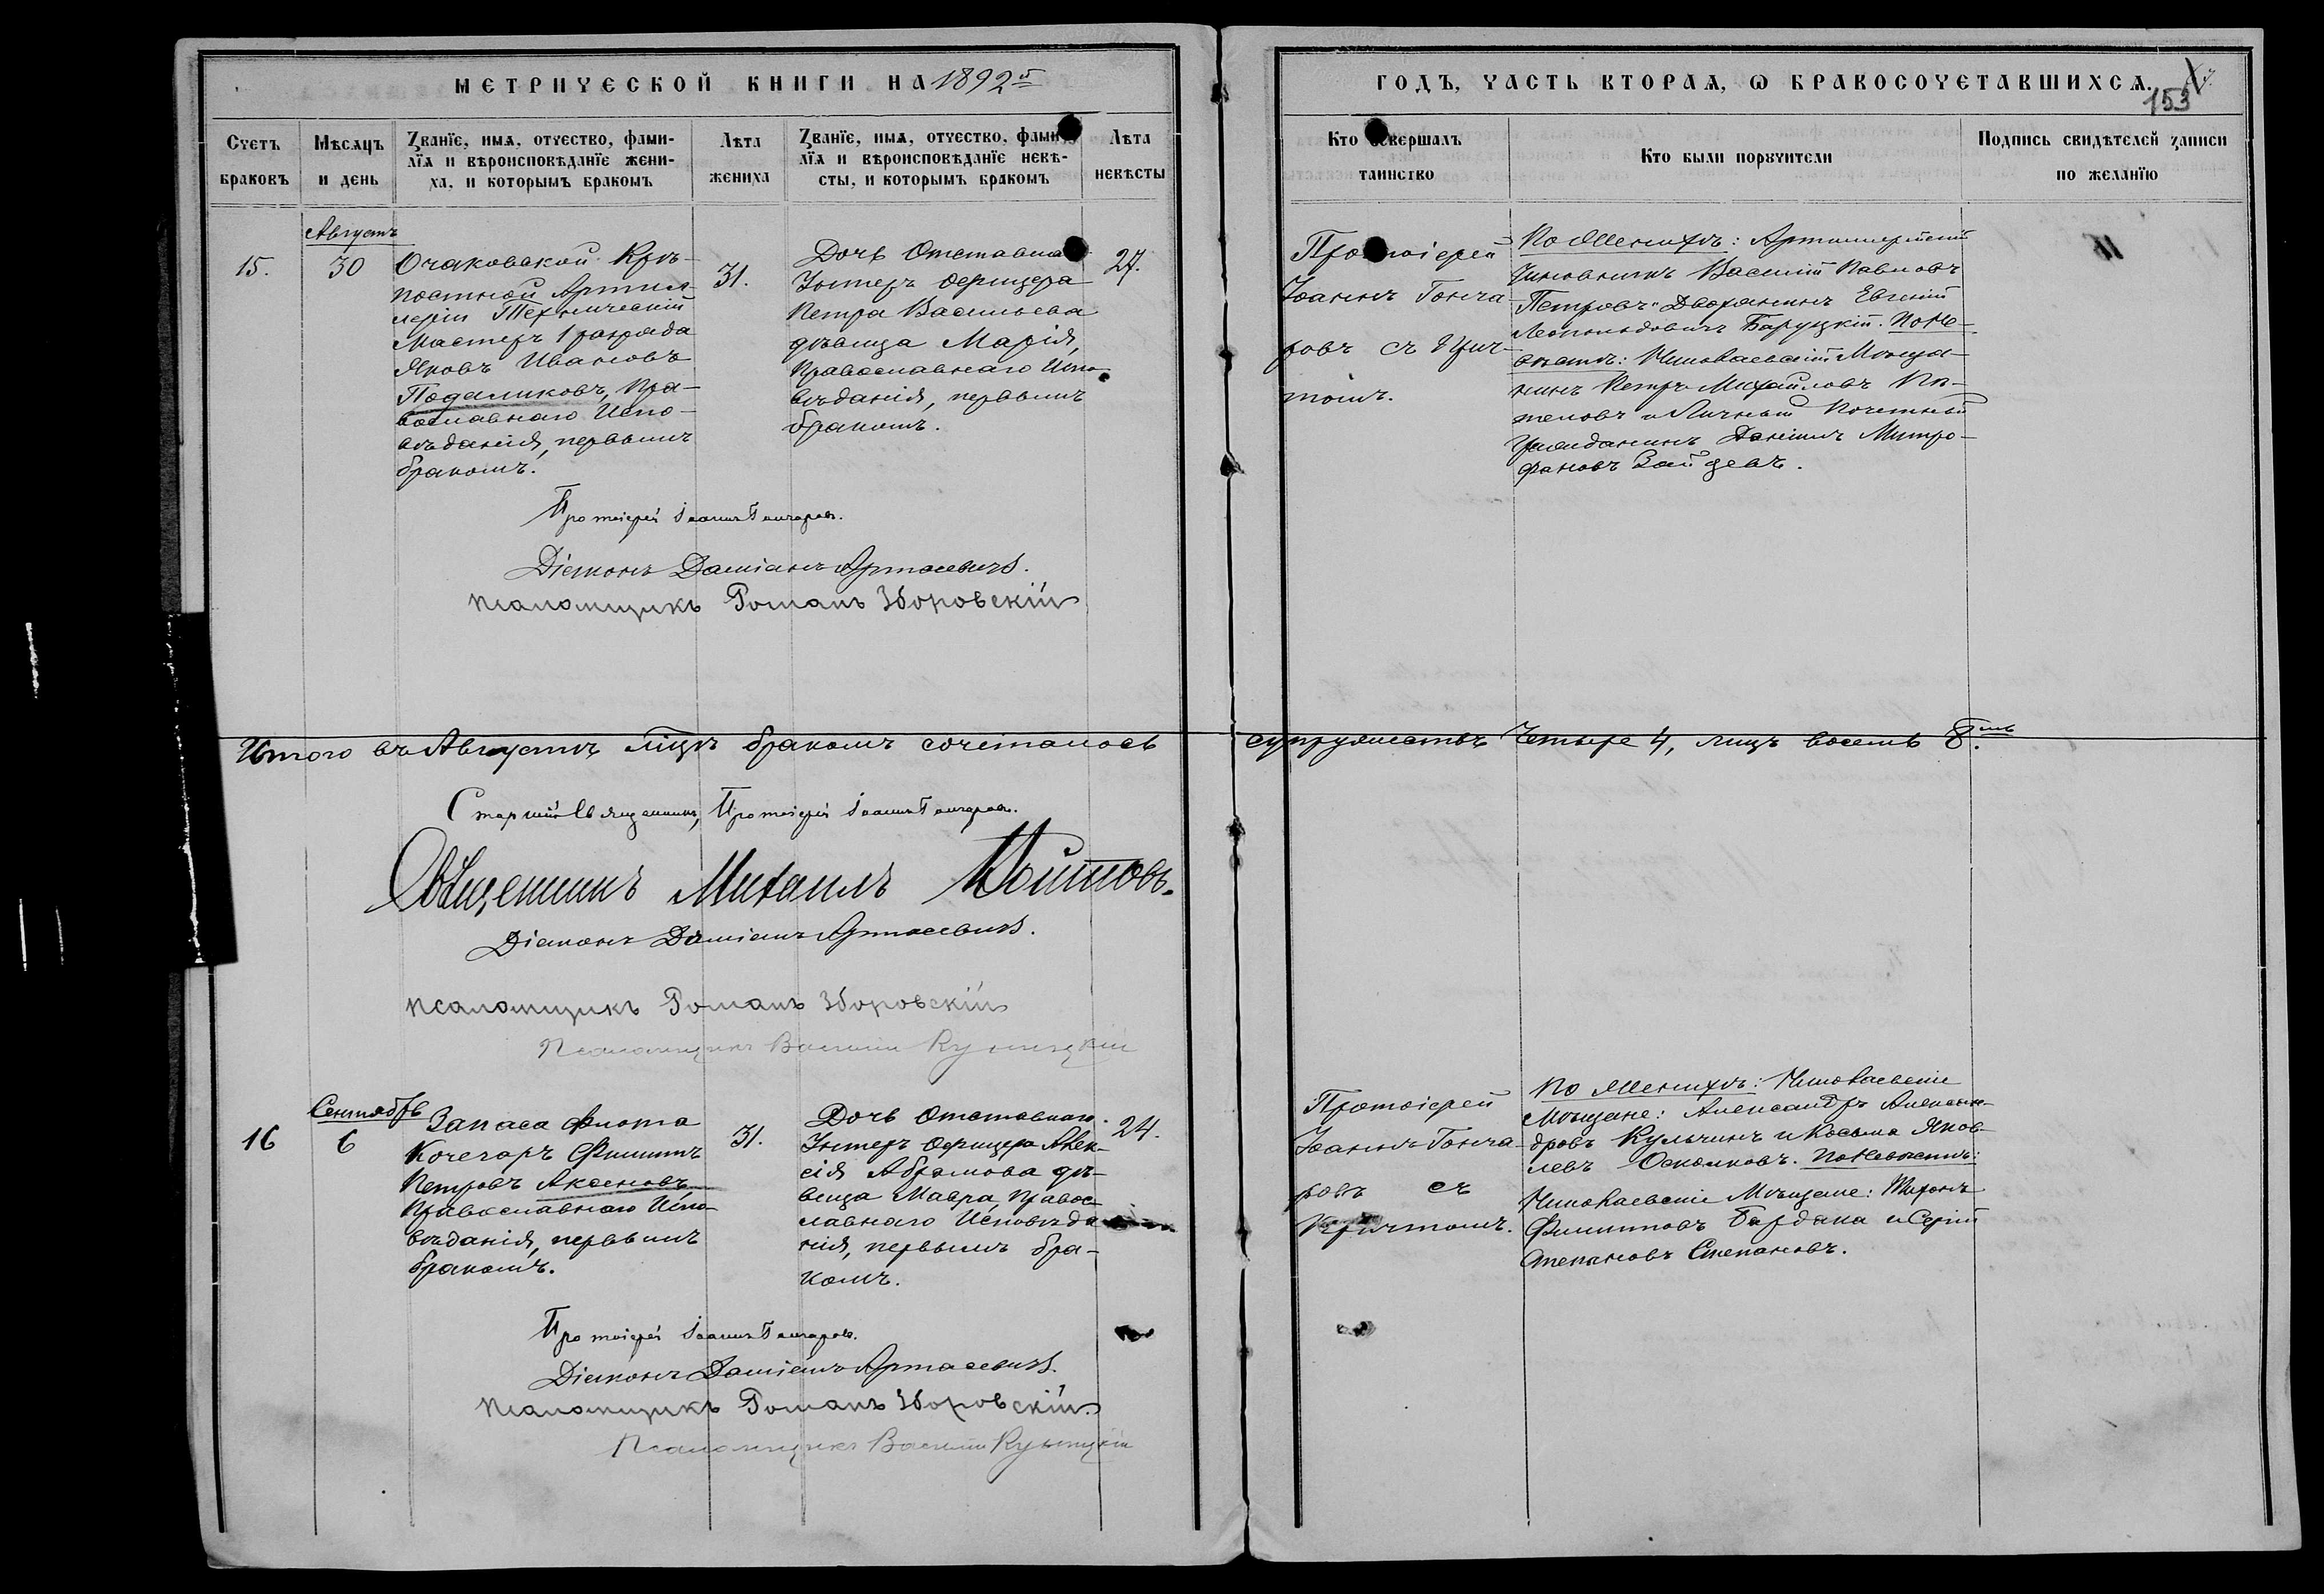 МЕТРИЧЕСКОЙ КНИГИ НА 1892й
ГОДЪ, ЧАСТЬ ВТОРАѦ, Ѡ БРАКОСОЧЕТАВШИХСѦ.
153
Счетъ браковъ
Мѣсѧцъ и день
Званїе, имѧ, отчество, фами-
лїѧ и вѣроисповѣданїе жени-
ха, и которымъ бракомъ
Лѣта жениха
Званїе, имѧ, отчество, фами-
лїѧ и вѣроисповѣданїе невѣ-
сты, и которымъ бракомъ
Лѣта невѣсты
Кто совершалъ таинство
Кто были порꙋчители
Подпись свидѣтелей записи
по желанїю
15.
Августъ
30
Очаковской Крѣ-
постной Артил-
леріи Техническій
Мастеръ 1 разряда
Яковъ Ивановъ
Подаликовъ, Пра-
вославнаго Испо-
вѣданія, первымъ
бракомъ.
31.
Дочь Отставна
Унтеръ Офицера
Петра Васильева
дѣвица Марія,
Православнаго Испо-
вѣданія, первымъ
бракомъ.
27.
Протоіерей
Іоаннъ Гонча-
ровъ съ Прич-
томъ.
По Женихѣ: Артиллерійскій
Чиновникъ Василій Павловъ
Петровъ и Дворянинъ Евгеній
Леопольдовичъ Баруцкій. По Не-
вѣстѣ: Николаевскій Мѣща-
нинъ Петръ Михайловъ
и Личный Почетный
Гражданинъ Даніилъ Митро-
фановъ Зайцевъ.
Протоіерей Іоаннъ Гончаровъ.
Діаконъ Даміанъ Артасевичъ.
Псаломщикъ Романъ Зборовскій
Итого въ Августѣ мѣцѣ бракомъ сочеталось супружествъ Четыре 4, лицъ восемь 8мь.
Старшій Священникъ, Протоіерей Іоаннъ Гончаровъ.
Священникъ Михаилъ Войтовъ.
Діаконъ Даміанъ Артасевичъ.
Псаломщикъ Романъ Зборовскій
Псаломщикъ Василій
16
Сентябрь
6
Запаса Флота
Кочегаръ Филиппъ
Петровъ Аксеновъ
Православнаго Испо-
вѣданія, первымъ
бракомъ.
31.
Дочь Отставнаго
Унтеръ Офицера Алек-
сія Абрамова дѣ-
вица Мавра, Правос-
лавнаго Исповѣда-
нія, первымъ бра-
комъ.
24.
Протоіерей
Іоаннъ Гонча-
ровъ съ
Причтомъ.
По Женихѣ: Николаевскіе
Мѣщане: Александръ Алексан-
дровъ Кульчинъ и Косьма Яков-
левъ Осколковъ. По Невѣстѣ:
Николаевскіе Мѣщане: Тихонъ
Филипповъ Бардака и Сергій
Степановъ Степановъ.
Протоіерей Іоаннъ Гончаровъ.
Діаконъ Даміанъ Артасевичъ.
Псаломщикъ Романъ Зборовскій
Псаломщикъ Василій